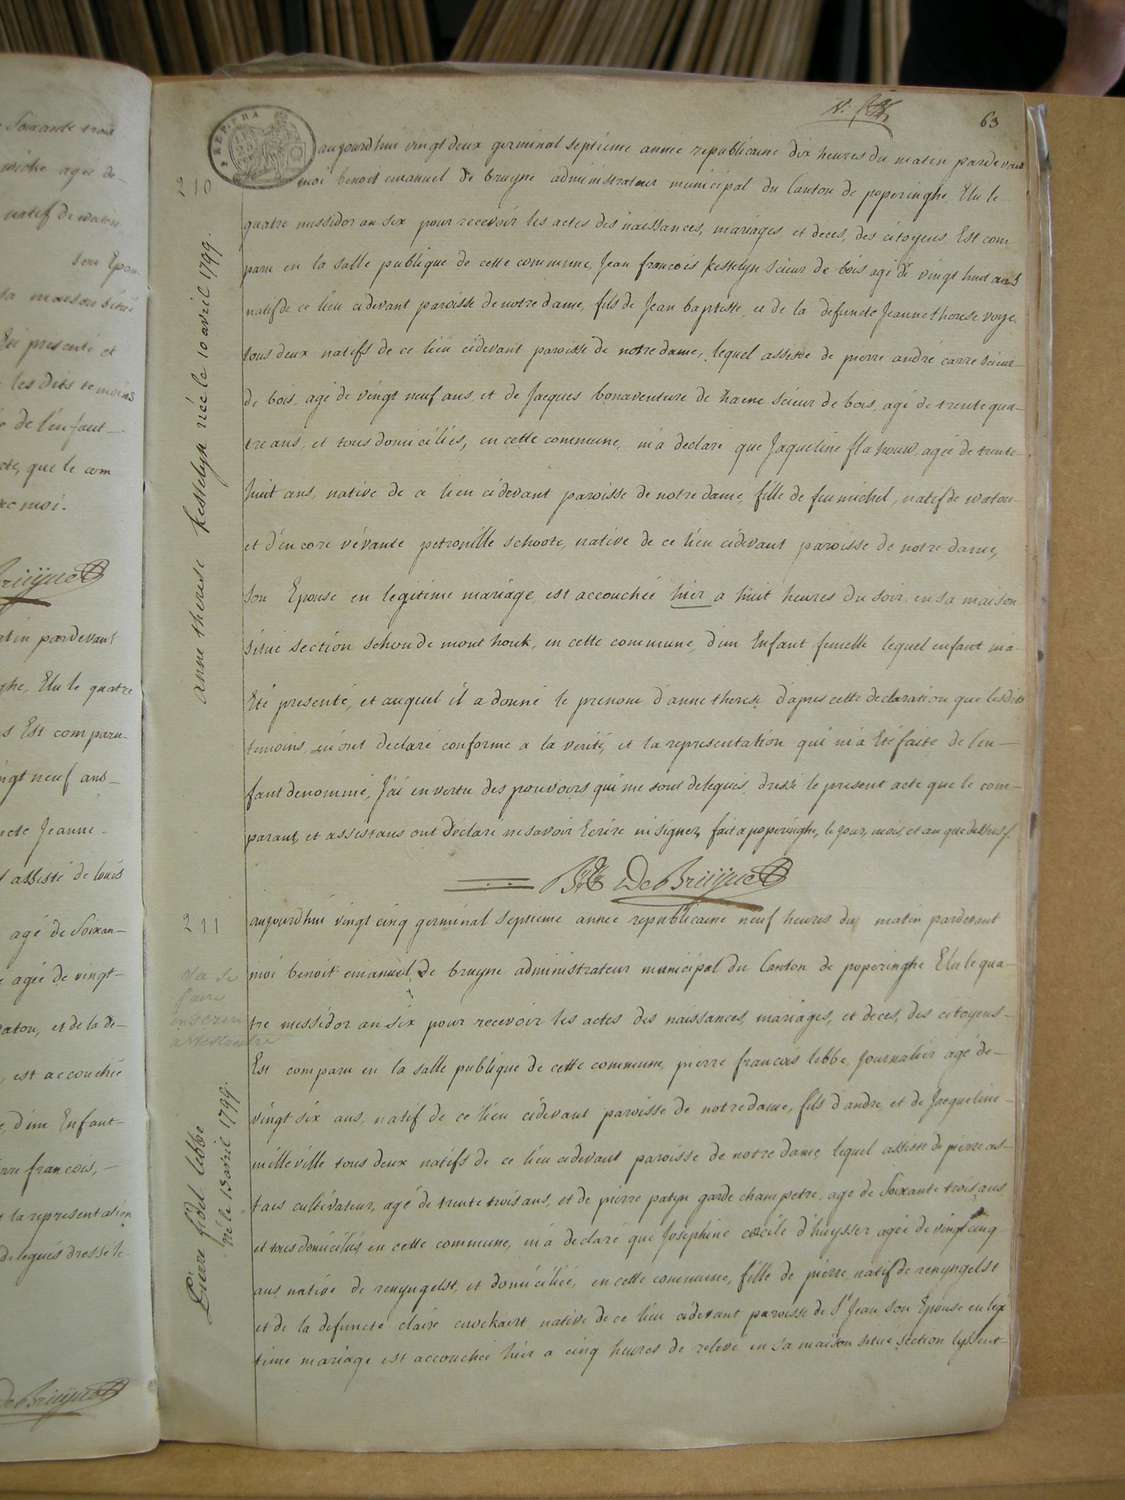 63
REP. FRA
210
aujourd'hui vingt deux germinal septieme annee republicaine dix heures du matin pardevant
moi benoit emanuel de bruyne administrateur municipal du Canton de poperinghe, Elu le
quatre messidor an six pour recevoir les actes des naissances, mariages et deces, des citoyens, Est com
paru en la salle publique de cette commune, Jean francois Kestelyn scieur de bois agé de vingt huit ans
natif de ce lieu cidevant paroisse de notre dame, fils de Jean baptiste, et de la defuncte Jeanne therese voye
tous deux natifs de ce lieu cidevant paroisse de notre dame, lequel assisté de pierre andré carre scieur
de bois, agé de vingt neuf ans, et de Jacques bonaventure de haene scieur de bois, agé de trente qua-
tre ans, et tous domiciliés, en cette commune, m'a declaré que Jaqueline flahouw, agée de trente
huit ans, native de ce lieu cidevant paroisse de notre dame, fille de feu michel, natif de watou
et d'encore vévante petronille schoote, native de ce lieu cidevant paroisse de notre dame,
son Epouse en legitime mariage, est accouchée hier a huit heures du soir en sa maison
située section schoudemont houk, en cette commune, d'un Enfant femelle lequel enfant m'a
Eté presenté, et auquel il a donné le prenom d'anne therese, d'apres cette declaration que les dits
temoins m'ont declaré conforme a la verité, et la representation qui m'a Eté faite de l'en-
fant denommé, J'ai en vertu des pouvoirs qui me sont delegués, dressé le present acte que le com-
parant, et assistans ont declaré ne savoir Ecrire ni signer, fait a poperinghe, le jour, mois, et an que dessus
De Bruijne
anne therese Kestelyn née le 10 avril 1799.
211
aujourd'hui vingt cinq germinal septieme annee republicaine neuf heures du matin pardevant
moi benoit emanuel de bruyne administrateur municipal du Canton de poperinghe Elu le qua-
tre messidor an six pour recevoir les actes des naissances, mariages, et deces, des citoyens-
Est comparu en la salle publique de cette commune, pierre francois lebbe, Journalier agé de-
vingt six ans, natif de ce lieu cidevant paroisse de notre dame, fils d'andre, et de Jacqueline-
milleville tous deux natifs de ce lieu cidevant paroisse de notre dame, lequel assisté de pierre as-
taes cultivateur, agé de trente trois ans, et de pierre patyn garde champetre, agé de Soixante trois ans
et tous domiciliés en cette commune, m'a declaré que Josephine cecile d'huysser agée de vingt cinq
ans, native de renyngelst, et domiciliée, en cette commune, fille de pierre, natif de renyngelst
et de la defuncte claire cnockaert, native de ce lieu cidevant paroisse de St Jean, son Epouse en legi
time mariage est accouchée hier a cinq heures de relevé en sa maison située section
va se
faire
inscrire
Pierre fidel lebbe
né le 13 avril 1799.